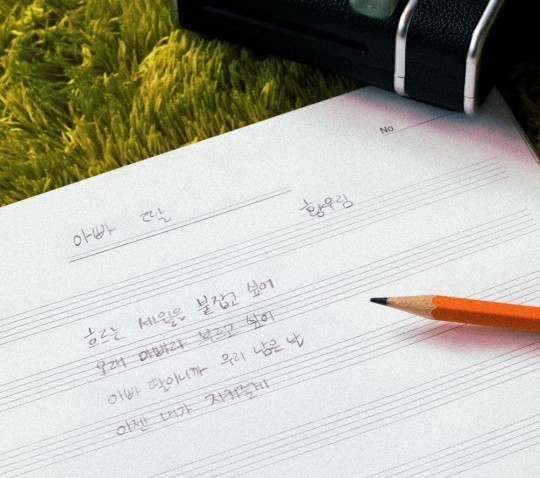 No.
아빠 딸 황우림
흐르는 세월을 붙잡고 싶어
오래 아빠라 부르고 싶어
아빠 딸이니까 우리 남은 날
이젠 내가 지켜줄게